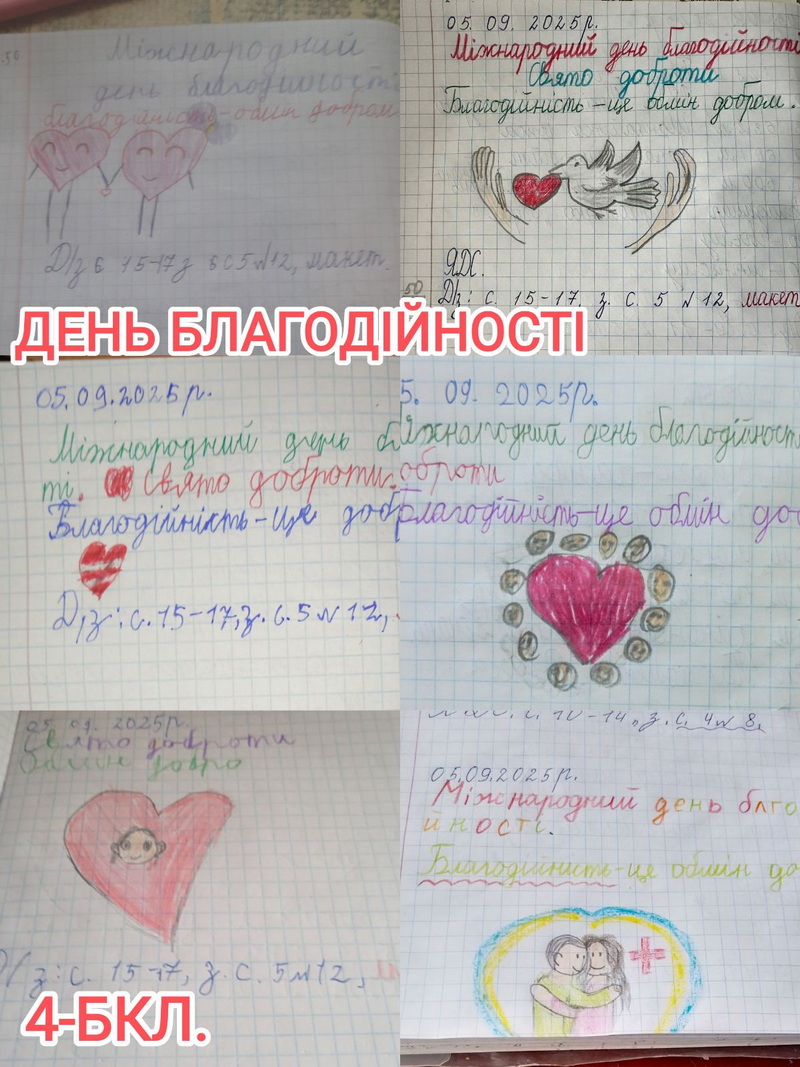 Міжнародний
день благодийності
благодійність-обмін добром
Д/з в 15-17 з в с 5 №12, макет.
05. 09. 2025р.
Міжнародний день благодійності
Свято доброти
Благодійність - це обмін добром.
ЯДС.
Д/з: с. 15-17, з. с. 5 №12, макет
ДЕНЬ БЛАГОДІЙНОСТІ
05.09.2025р.
Міжнародний день б
ті. Свято доброти.
Благодійність-Це доб
Д/з: с. 15-17, з. с. 5 №12,
5. 09. 2025р.
іжнародний день благодійност
оброти
Благодійність-це обмін до
05. 09. 2025р.
Свято доброти
Обмін добро
Д/з: с. 15-17, з. с. 5 №12,
з. с. 4 №8.
05.09.2025р.
Міжнародний день благо
йності.
Благодійність-це обмін до
4-БКЛ.